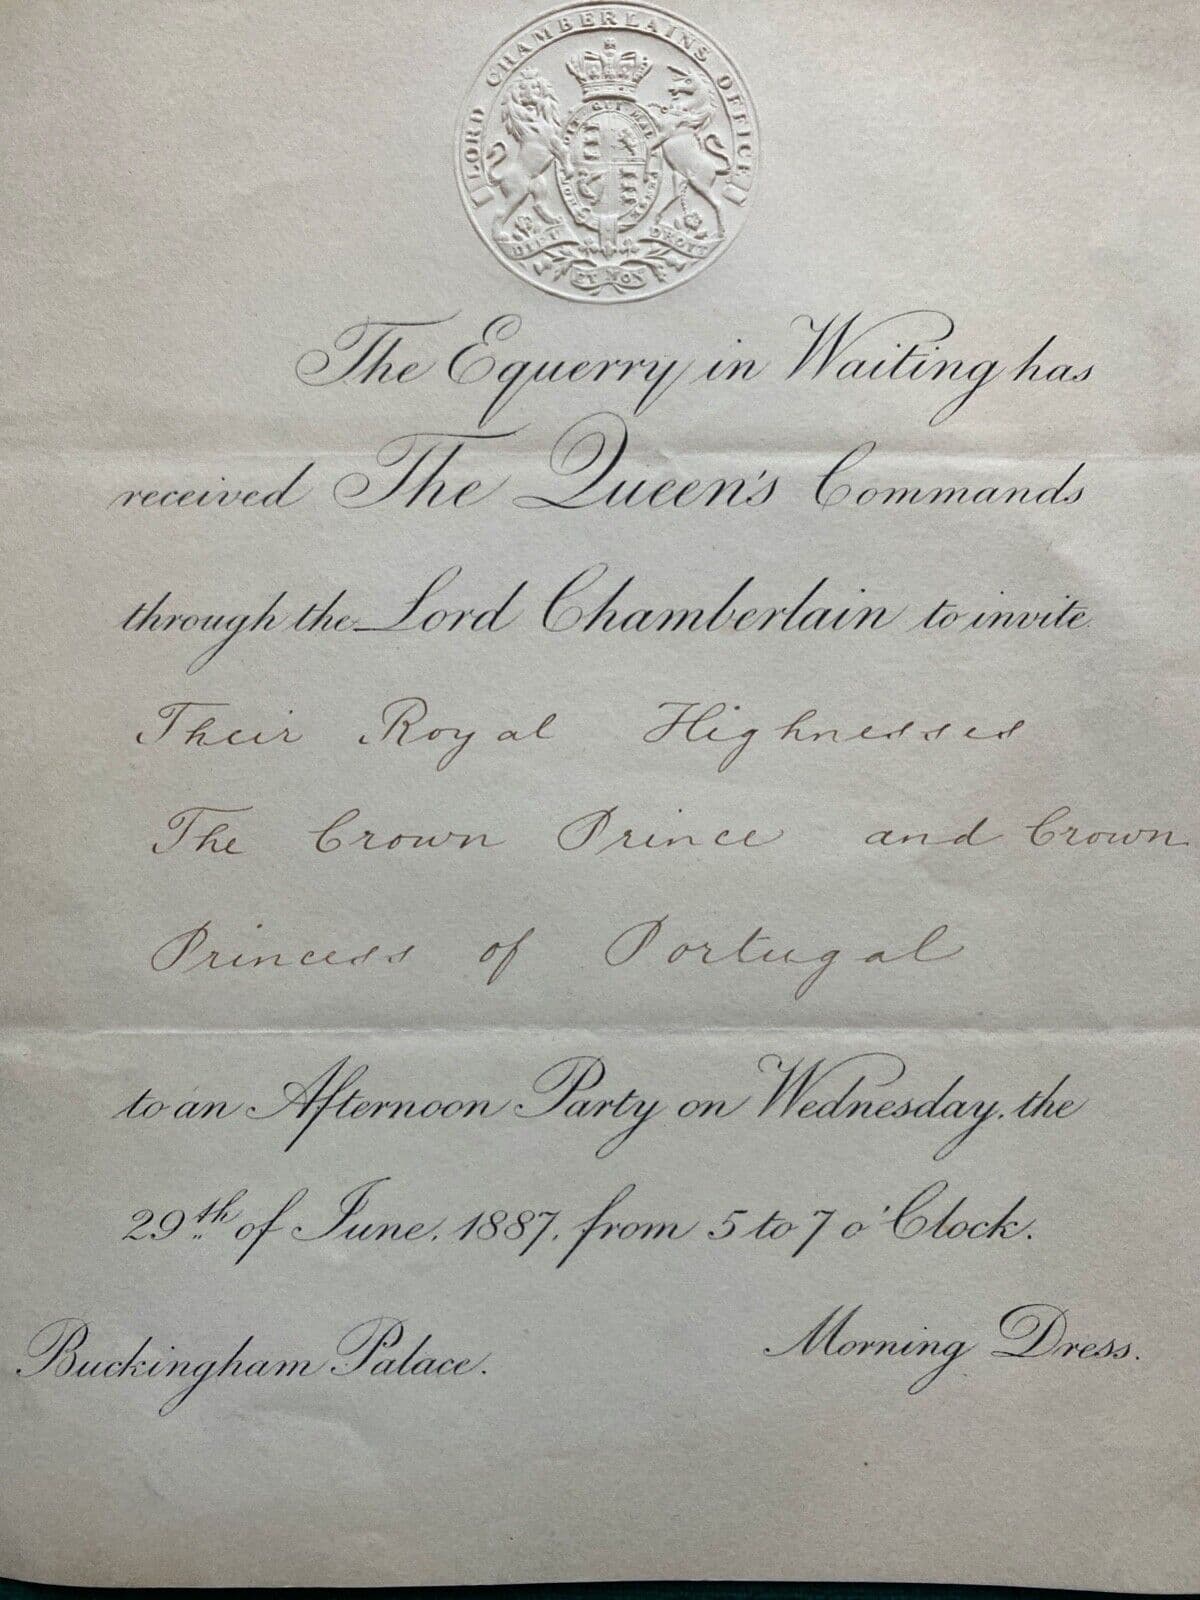 LORD CHAMBERLAINS OFFICE
DIEU ET MON DROIT
The Equerry in Waiting has
received The Queen's Commands
through the Lord Chamberlain to invite
Their Royal Highnesses
The Crown Prince and Crown
Princess of Portugal
to an Afternoon Party on Wednesday, the
29th of June, 1887, from 5 to 7 o'Clock.
Buckingham Palace.
Morning Dress.